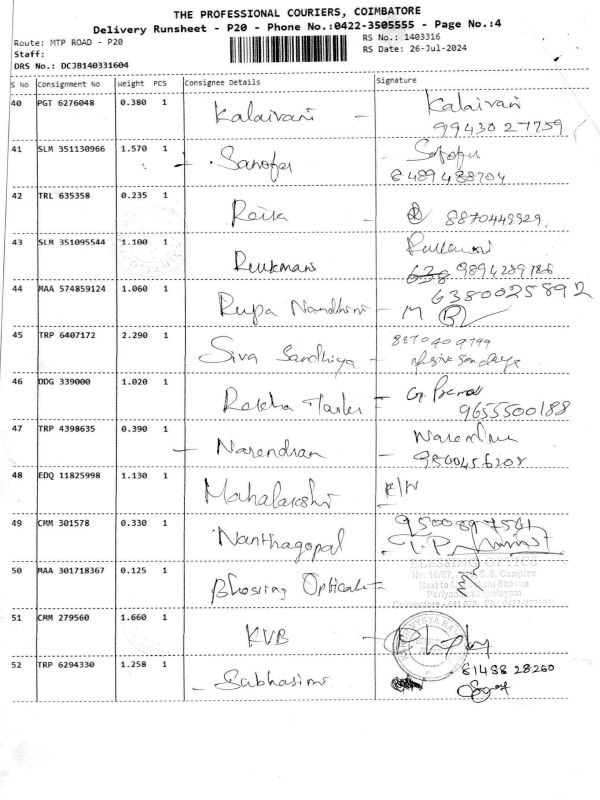 THE PROFESSIONAL COURIERS, COIMBATORE
Delivery Runsheet - P20 - Phone No.:0422-3505555 - Page No.:4
Route: MTP ROAD - P20
RS No.: 1403316
Staff:
RS Date: 26-Jul-2024
DRS No.: DCJB140331604
S No Consignment No Weight PCS Consignee Details Signature
40 PGT 6276048 0.380 1 Kalaivani - Kalaivani
99430 27759
41 SLM 351130966 1.570 1 Sanofer
8489488704
42 TRL 635358 0.235 1 - 8870449929
43 SLM 351095544 1.100 1 Rukmani
638 9894289186
44 MAA 574859124 1.060 1 Rupa Nandhini - 6380025892
45 TRP 6407172 2.290 1 Siva Sandhiya - 8870409799
46 DDG 339000 1.020 1 -
9655500188
47 TRP 4398635 0.390 1 - Narendran
- 9500456208
48 EDQ 11825998 1.130 1 Mahalakshmi
49 CMM 301578 0.330 1 Nanthagopal
50 MAA 301718367 0.125 1 Blossing Opticals -
BLESSING OPTICS
Complex
Bhavan
51 CMM 279560 1.660 1 KVB -
52 TRP 6294330 1.258 1 - 81438 28260